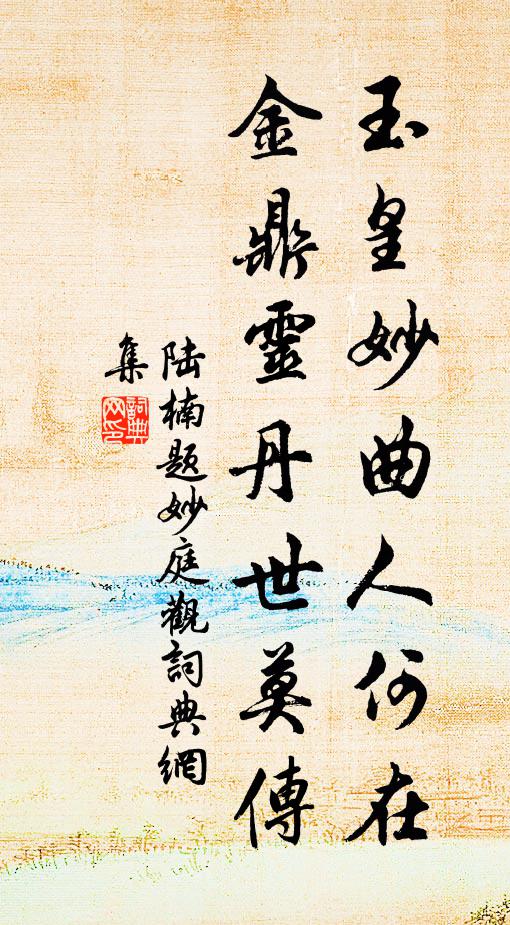 玉皇妙曲人何在
金鼎靈丹世莫傳
陆楠题妙庭觀詞典網
集
詞典
网印